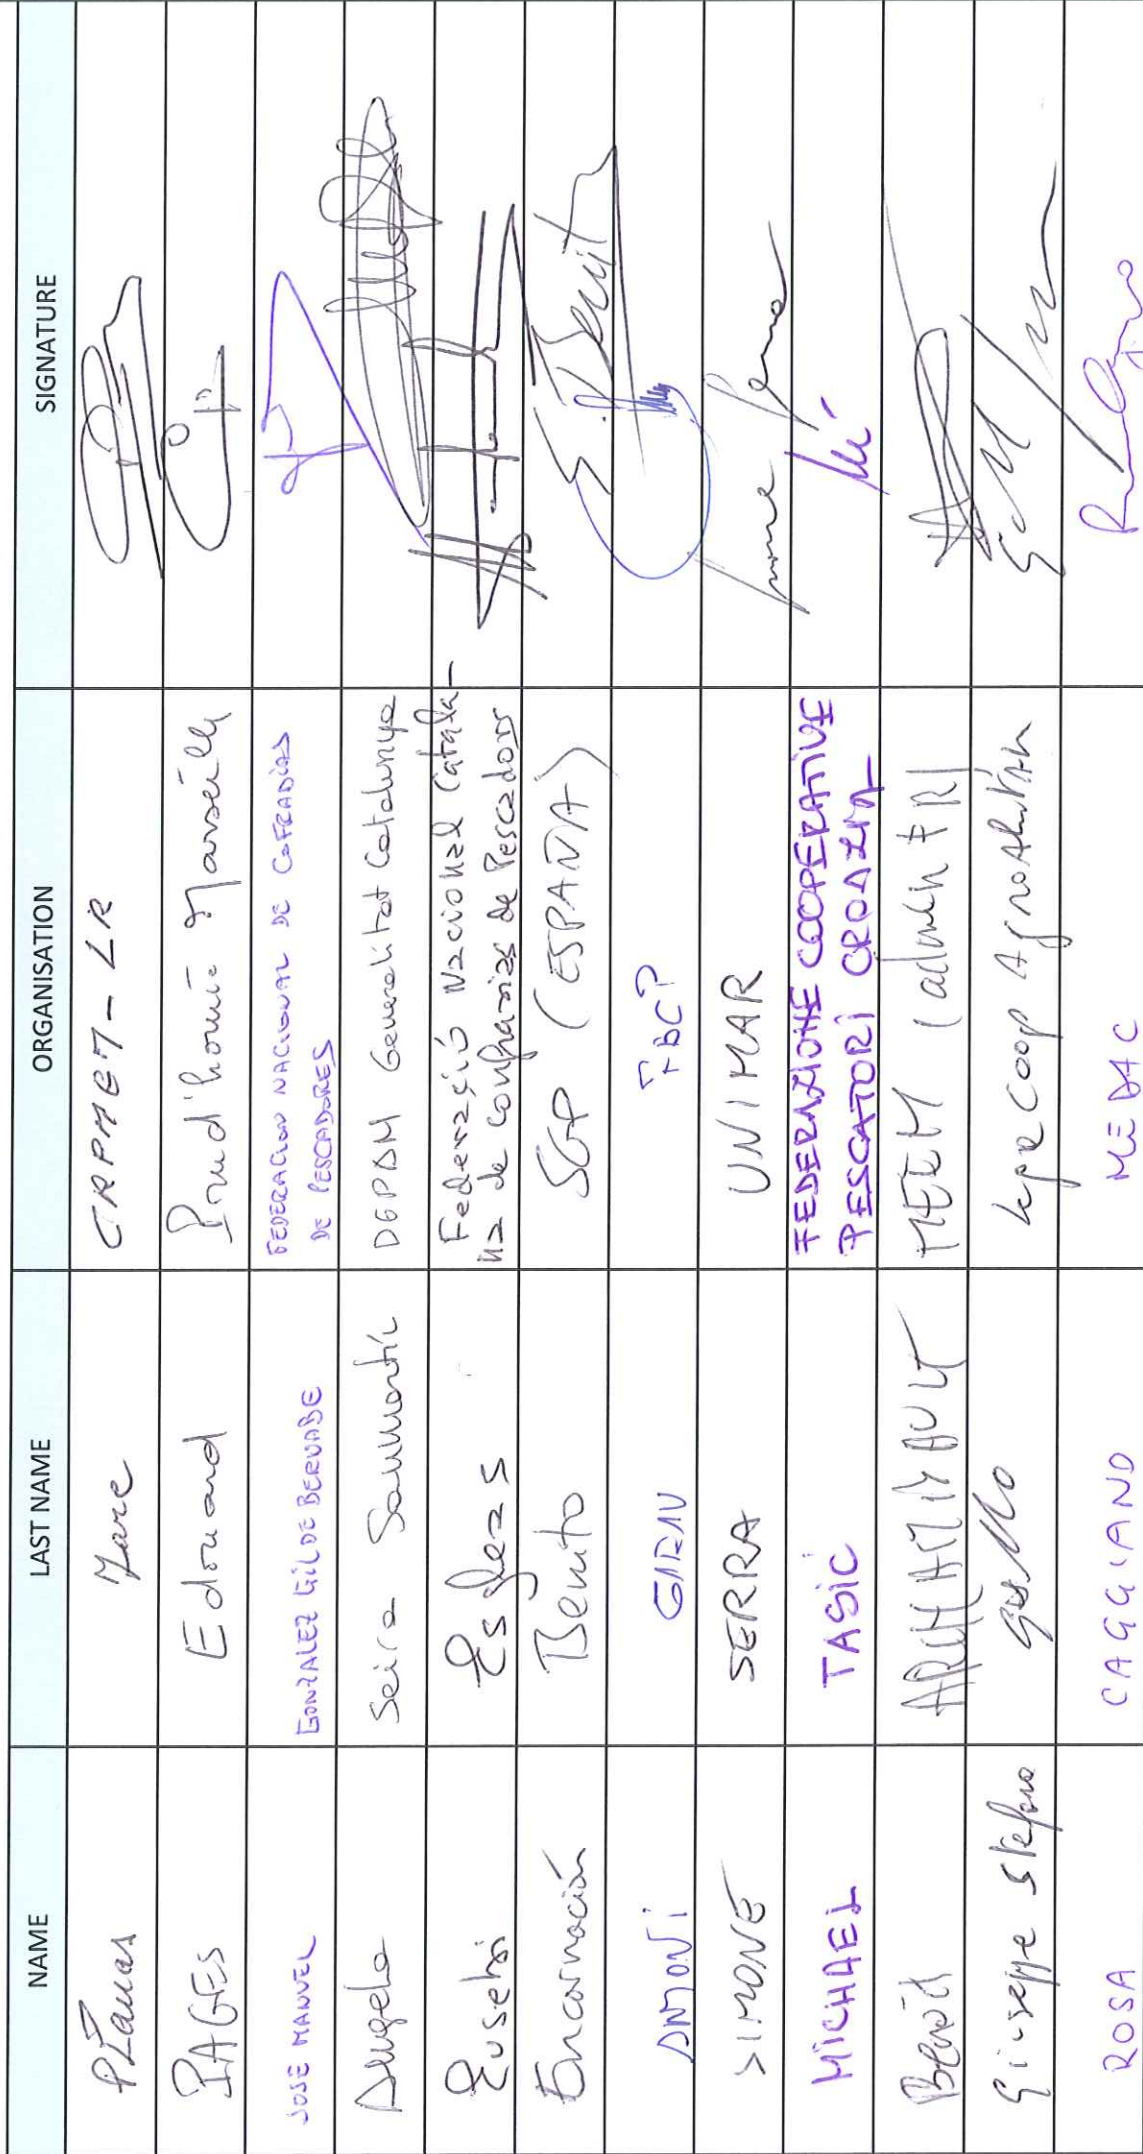 NAME LAST NAME ORGANISATION SIGNATURE
PLanas Marc CRPMEM-LR
PAGES Edouard Prud'homie Marseille
JOSÉ MANUEL GONZALEZ GIL DE BERNABE FEDERACION NACIONAL DE COFRADIAS
DE PESCADORES
Angela Seira Sanmartín DGPAM Generalitat Catalunya
Eusebi Esgleas Federació Nacional Catala-
na de confraries de Pescadors
Encarnación Benito SGP (ESPAÑA) E. Benito
ANTONI GARAU FBCP
SIMONE SERRA UNIMAR Simone Serra
MICHAEL TASIĆ FEDERAZIONE COOPERATIVE
PESCATORI CROAZIA
Benoît ARCHAMBAULT MEEM (admin FR)
Giuseppe Stefano Gullo Coop
ROSA CAGGIANO MEDAC